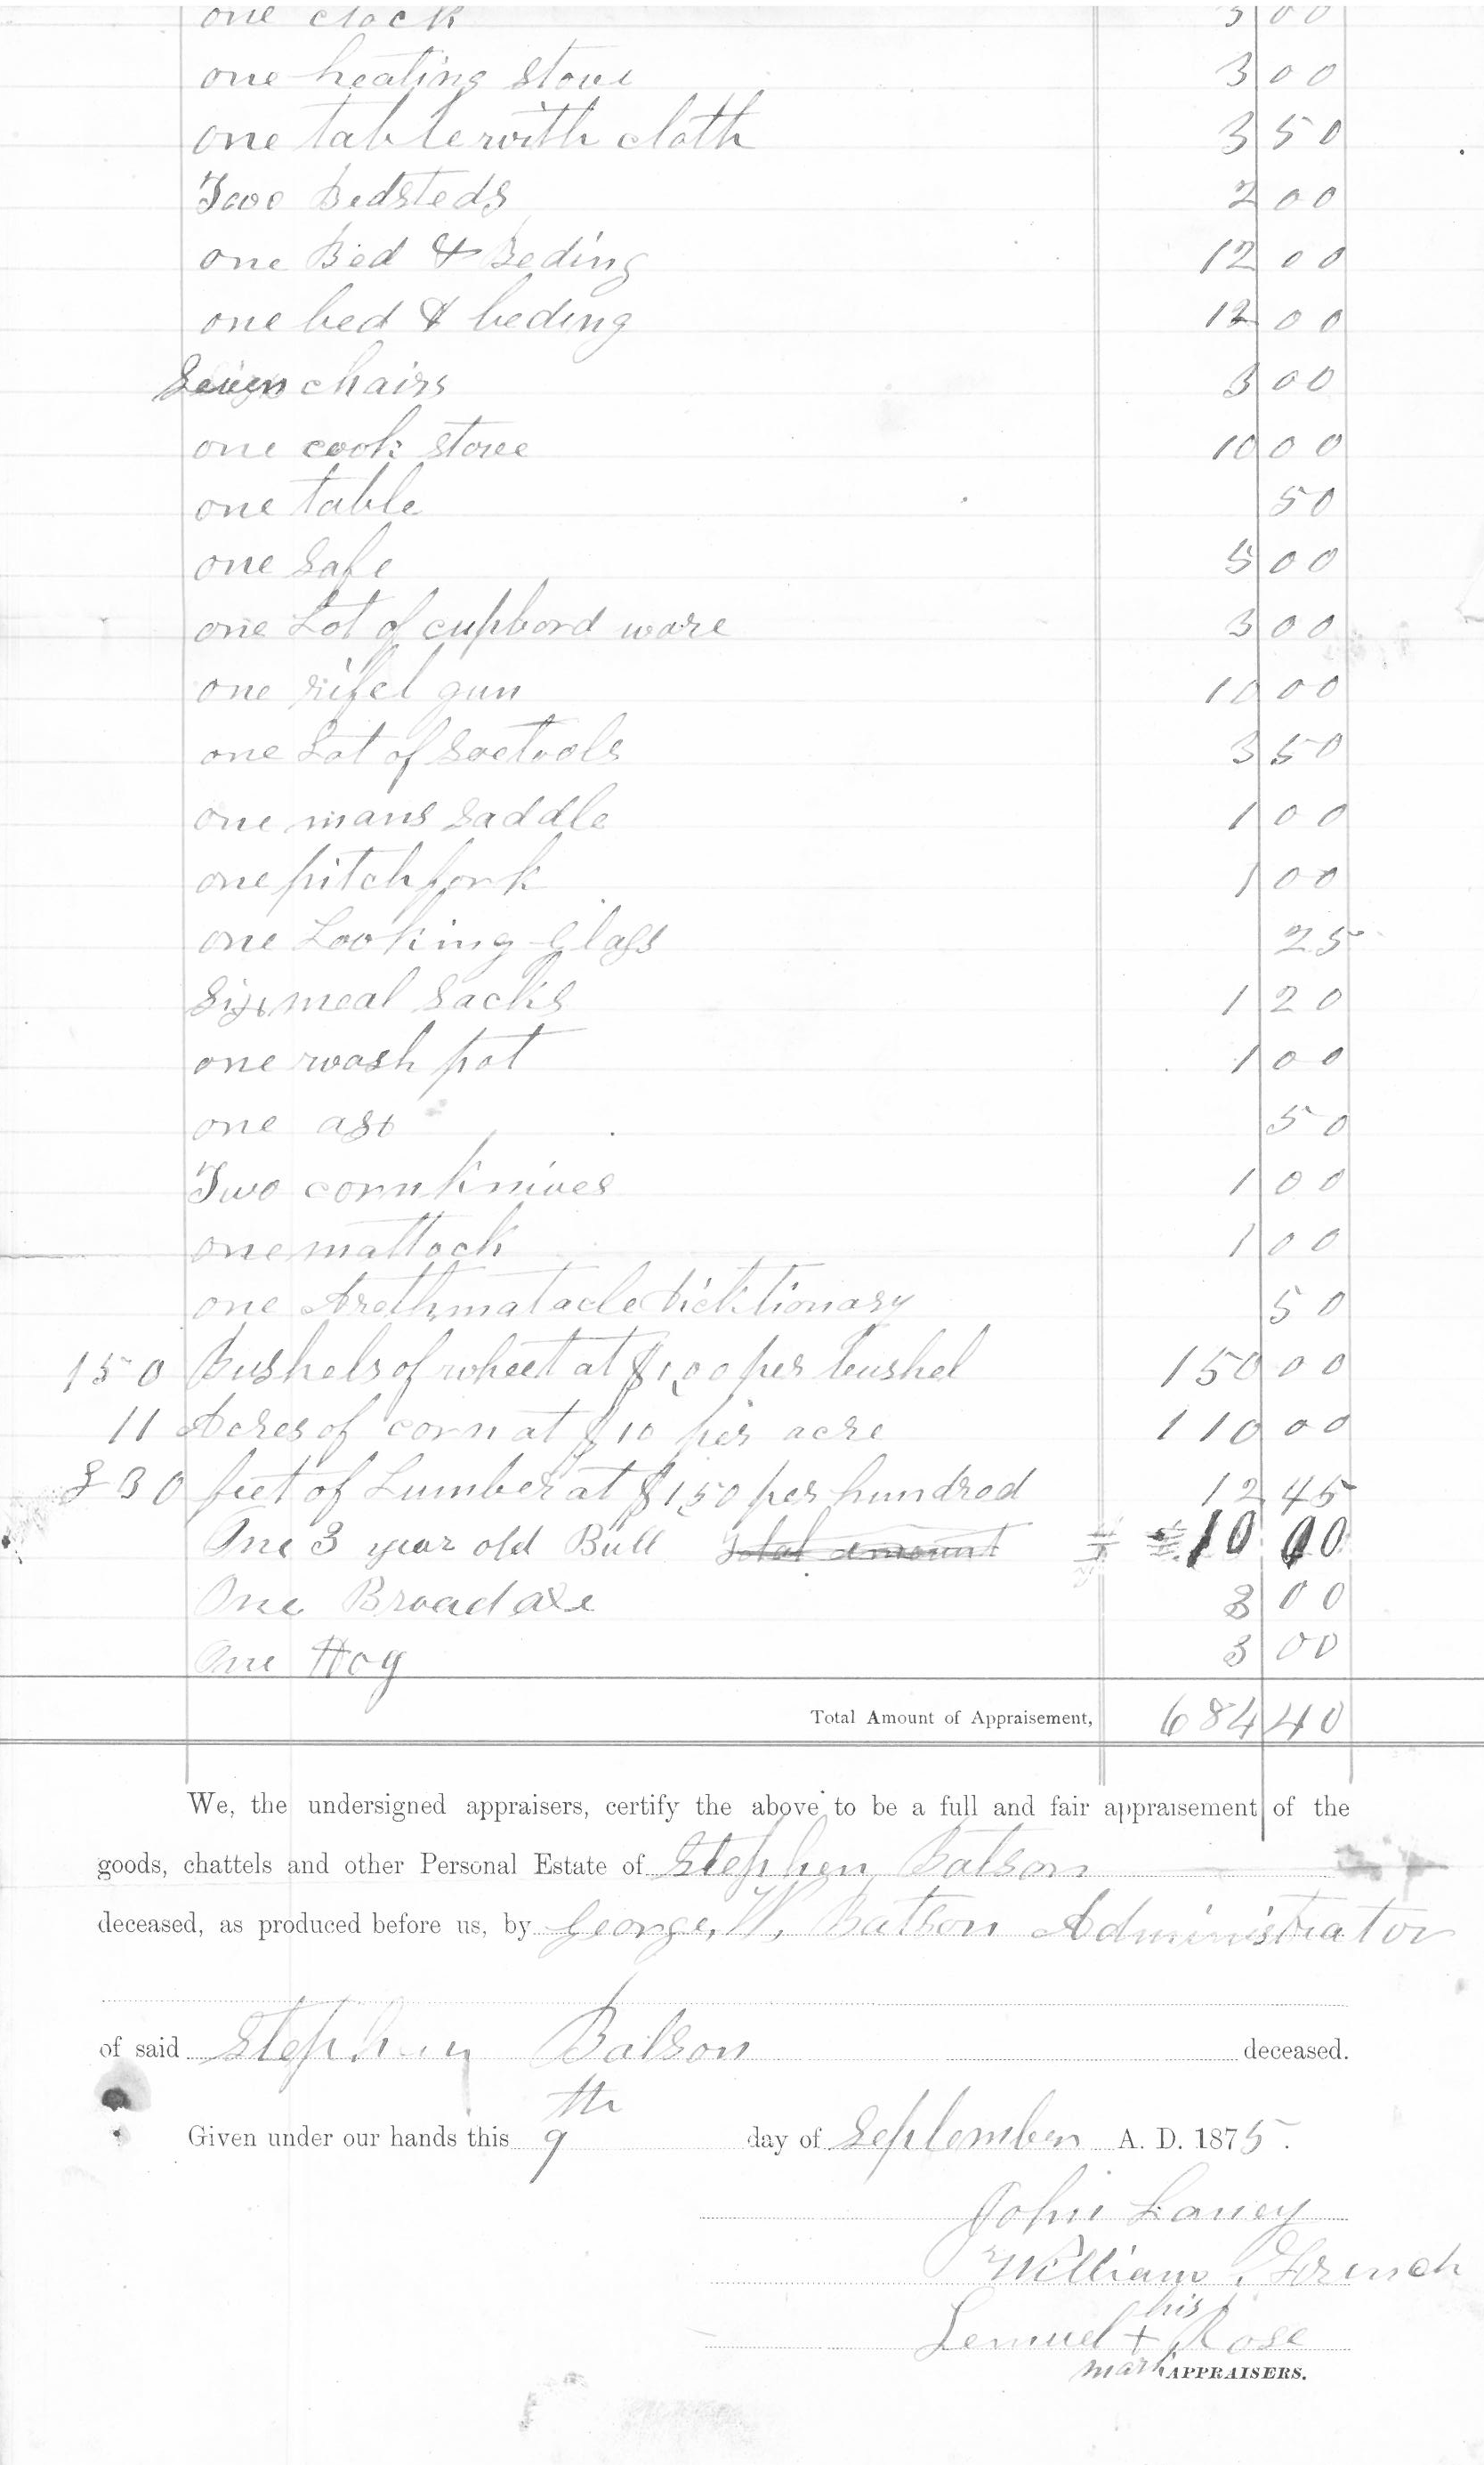 one clock 3 00
one heating stove 3 00
one table with cloth 3 50
Two Bedsteds 2 00
one Bed & Beding 12 00
one bed & beding 12 00
Seven chairs 3 00
one cook stove 10 00
one table 50
one Safe 5 00
one Lot of cupbord ware 3 00
one rifel gun 10 00
one Lot of Soetools 3 50
one mans Saddle 1 00
one pitch fork 1 00
one Looking glass 25
Six meal Sacks 1 20
one wash pot 1 00
one ax 50
Two corn knives 1 00
one mattock 1 00
one Arethmatacle Dicktionary 50
150 Bushels of wheet at $1,00 per bushel 150 00
11 Acres of corn at $10 per acre 110 00
830 feet of Lumber at $1,50 per hundred 12 45
One 3 year old Bull total amount 10 00
One Broad axe 3 00
One Hog 3 00
Total Amount of Appraisement, 684 40
We, the undersigned appraisers, certify the above to be a full and fair appraisement of the
goods, chattels and other Personal Estate of Stephen Batson
deceased, as produced before us, by George W. Batson Administrator
of said Stephen Batson deceased.
Given under our hands this 9th day of September A. D. 1875.
John Laney
William French
his
Lemuel + Rose
mark APPRAISERS.